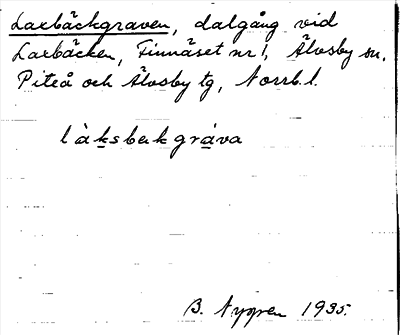 Laxbäckgraven, dalgång vid
Laxbäcken, Finnäset nr 1, Älvsby sn,
Piteå och Älvsby tg, Norrb. l.
làksbɛkgràva
B. Nygren 1935.